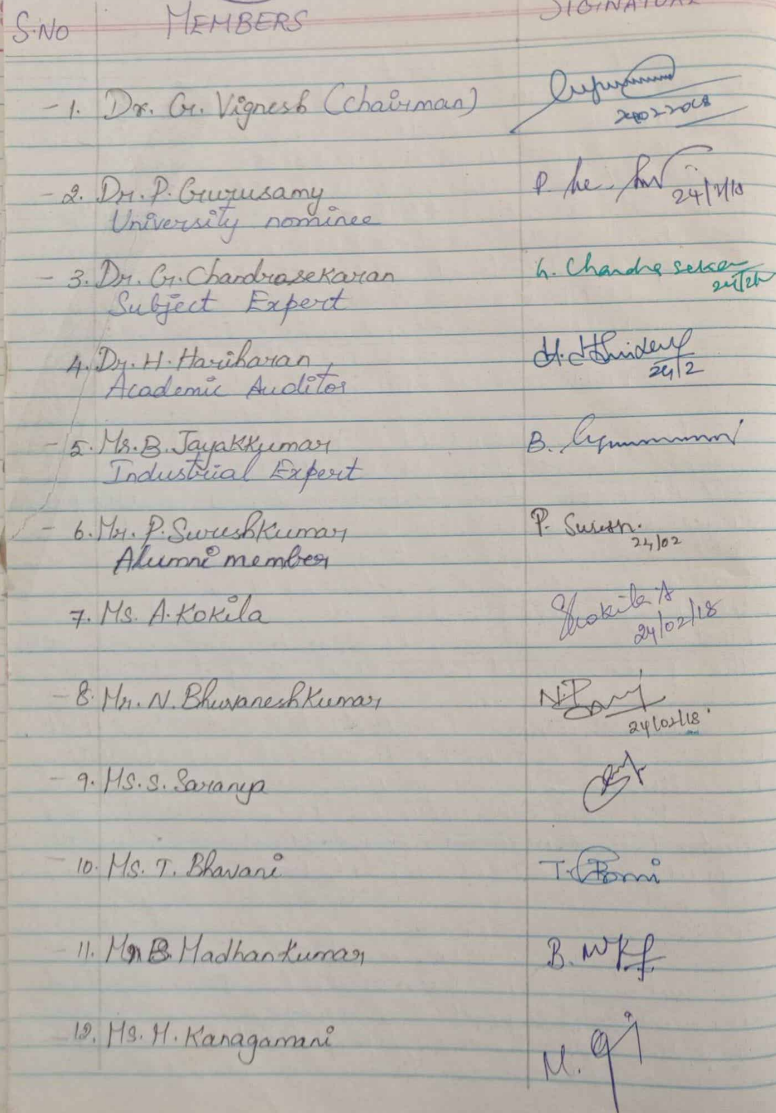 S.NO MEMBERS SIGINATURE
- 1. Dr. G. Vignesh (Chairman)
24022018
- 2. Dr. P. Gurusamy P.
University nominee 24/2/18
- 3. Dr. G. Chandrasekaran G. Chandrasekar
Subject Expert 24/2/18
4. Dr. H. Hariharan H.
Academic Auditor 24/2
- 5. Mr. B. Jayakkumar B.
Industrial Expert
- 6. Mr. P. Sureshkumar P. Suresh.
Alumni member 24/02
7. Ms. A. Kokila Kokila A
24/02/18
- 8. Mr. N. Bhuvaneshkumar N.
24/02/18.
- 9. Ms. S. Saranya
10. Ms. T. Bhavani T.
11. Mr. B. Madhankumar B.
12. Ms. M. Kanagamani M.